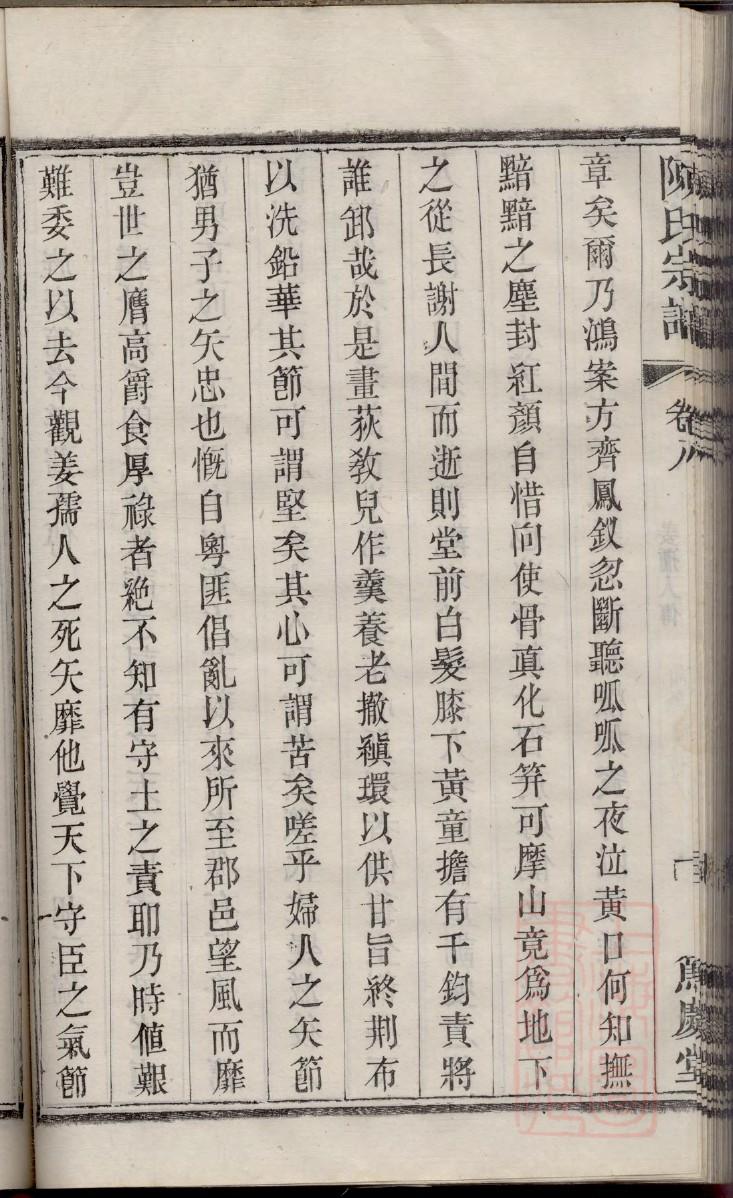 陳氏宗譜
卷八
篤慶堂
章矣爾乃鴻案方齊鳳釵忽斷聽呱呱之夜泣黃口何知撫
黯黯之塵封紅顏自惜向使骨眞化石笄可摩山竟爲地下
之從長謝人間而逝則堂前白髮膝下黃童擔有千鈞責將
誰卸哉於是畫荻敎兒作羹養老撤縝環以供甘旨終荆布
以洗鉛華其節可謂堅矣其心可謂苦矣嗟乎婦人之矢節
猶男子之矢忠也慨自粵匪倡亂以來所至郡邑望風而靡
豈世之膺高爵食厚祿者絕不知有守土之責耶乃時値艱
難委之以去今觀姜孺人之死矢靡他覺天下守臣之氣節